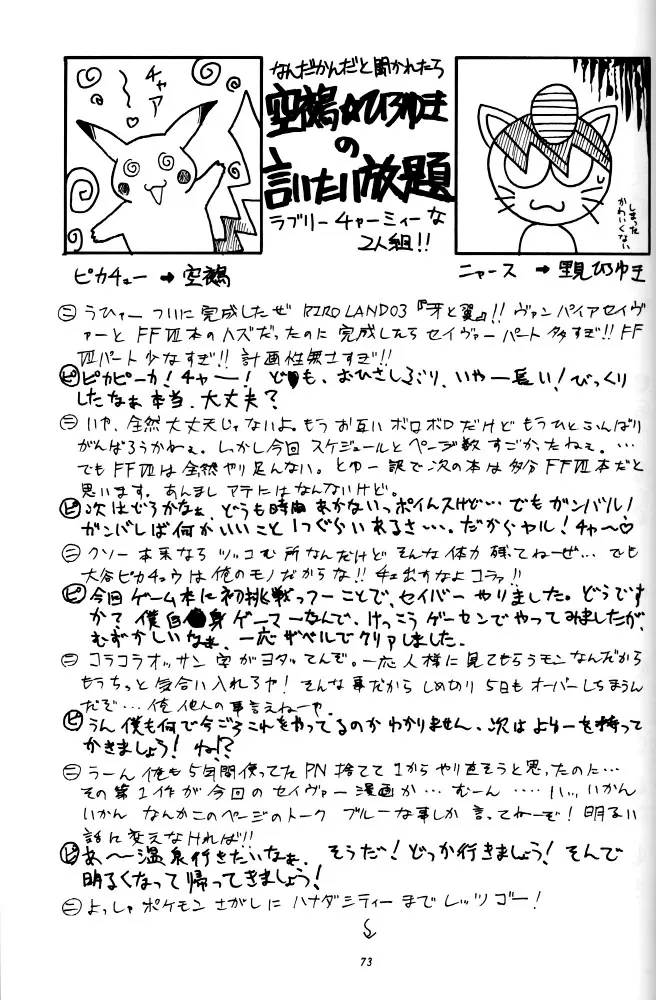 なんだかんだと聞かれたら
空鵺☆ひろゆき
の
言いたい放題
ラブリーチャーミィーな
2人組!!
チャア
しまった
かわいくない
ピカチュー→空鵺
ニャース→里見ひろゆき
ニ うひゃー ついに完成したぜ RIROLAND03『牙と翼』!! ヴァンパイアセイヴ
ァーとFFⅦ本のハズだったのに完成したらセイヴァーパート多すぎ!! FF
Ⅶパート少なすぎ!! 計画性無さすぎ!!
ピ ピカピーカ! チャー! ども、おひさしぶり、いやー長い! びっくり
したなぁ本当、大丈夫?
ニ いや、全然大丈夫じゃないよ。もうお互いボロボロだけどもうひとふんばり
がんばろうかねぇ。しっかし今回スケジュールとページ数すごかったねぇ。…
でもFFⅦは全然やり足んない。とゆー訳で次の本は多分FFⅦ本だと
思います。あんましアテにはなんないけど。
ピ 次はどうかなぁ、どうも時間あかないっポイんスけど…でもガンバル!
ガンバレば何かいいこと1つぐらいあるさ…。だからヤル! チャ〜♡
ニ クソー本来ならツッコむ所なんだけどそんな体力残てねーぜ…でも
大谷ピカチュウは俺のモノだからな!! チェ出すなよコラァ!!
ピ 今回ゲーム本に初挑戦っつーことで、セイバーやりました。どうです
かて 僕自身ゲーマーなんで、けっこうゲーセンでやってみましたが、
むずかしいなぁ、一応ザベルでクリアしました。
ニ コラコラオッサン字がヨタってんぞ。一応人様に見てもらうモンなんだから
もうちっと気合い入れろや! そんな事だからしめ切り5日もオーバーしちまうん
だぞ…俺他人の事言えねーや。
ピ うん僕も何で今ごろこれをやってるのかわかりません、次はよゆーを持って
かきましょう! ね!?
ニ うーん俺も5年間使ってたPN捨てて1からやり直そうと思ったのに…
その第1作が今回のセイヴァー漫画か…むーん…‥ハッ、いかん
いかん なんかこのページのトークブルーな事しか言ってねーぞ! 明るい
話に変えなければ!!
ピ あ〜温泉行きたいなぁ、そうだ! どっか行きましょう! そんで
明るくなって帰ってきましょう!
ニ よっしゃポケモンさがしにハナダシティーまでレッツゴー!
73